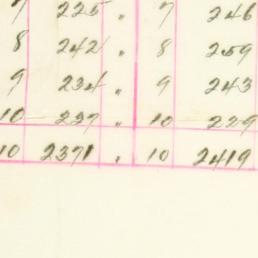 7 225 " 7 246
8 242 " 8 259
9 234 " 9 243
10 237 " 10 229
10 2371 " 10 2419